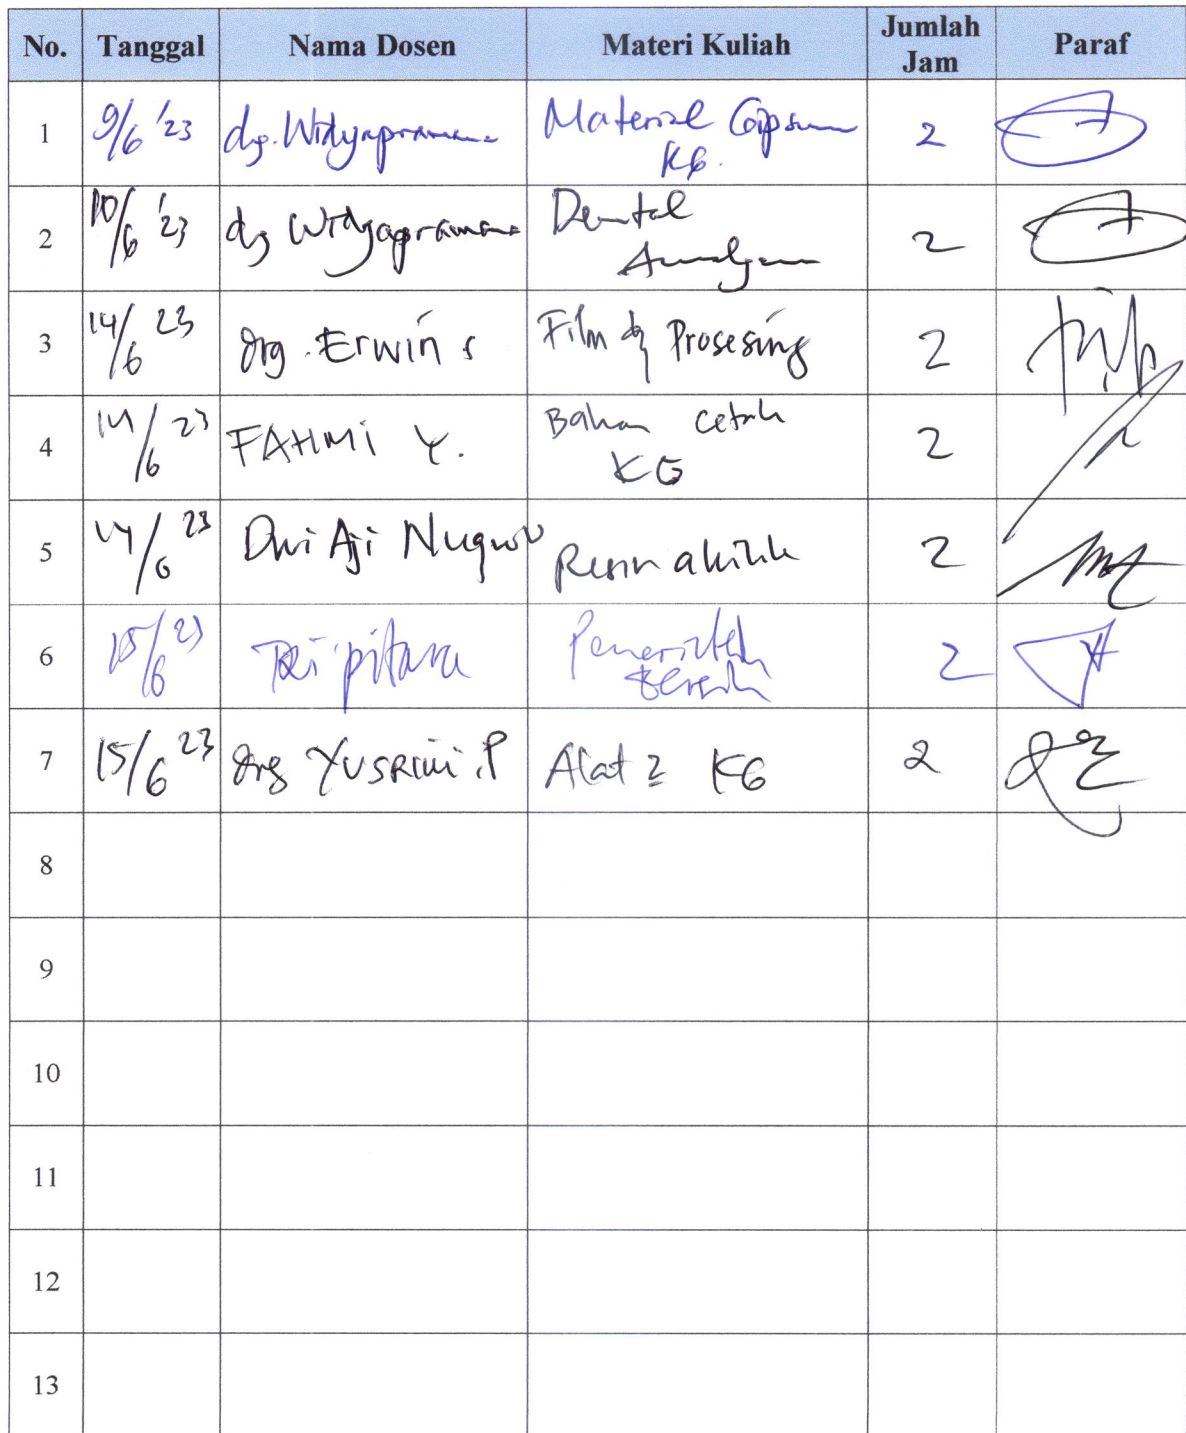 No. Tanggal Nama Dosen Materi Kuliah Jumlah Jam Paraf
1 9/6 '23 drg. Widyapramana Material Gipsum KG. 2
2 10/6 '23 drg Widyapramana Dental Amalgam 2
3 14/6 23 drg. Erwin s Film & Prosesing 2
4 14/6 23 FAHMI Y. Bahan cetak KG 2
5 14/6 23 Dwi Aji Nugroho Resin akrilik 2
6 15/6 23 2
7 15/6 23 drg YUSRINI .P Alat2 KG 2
8
9
10
11
12
13